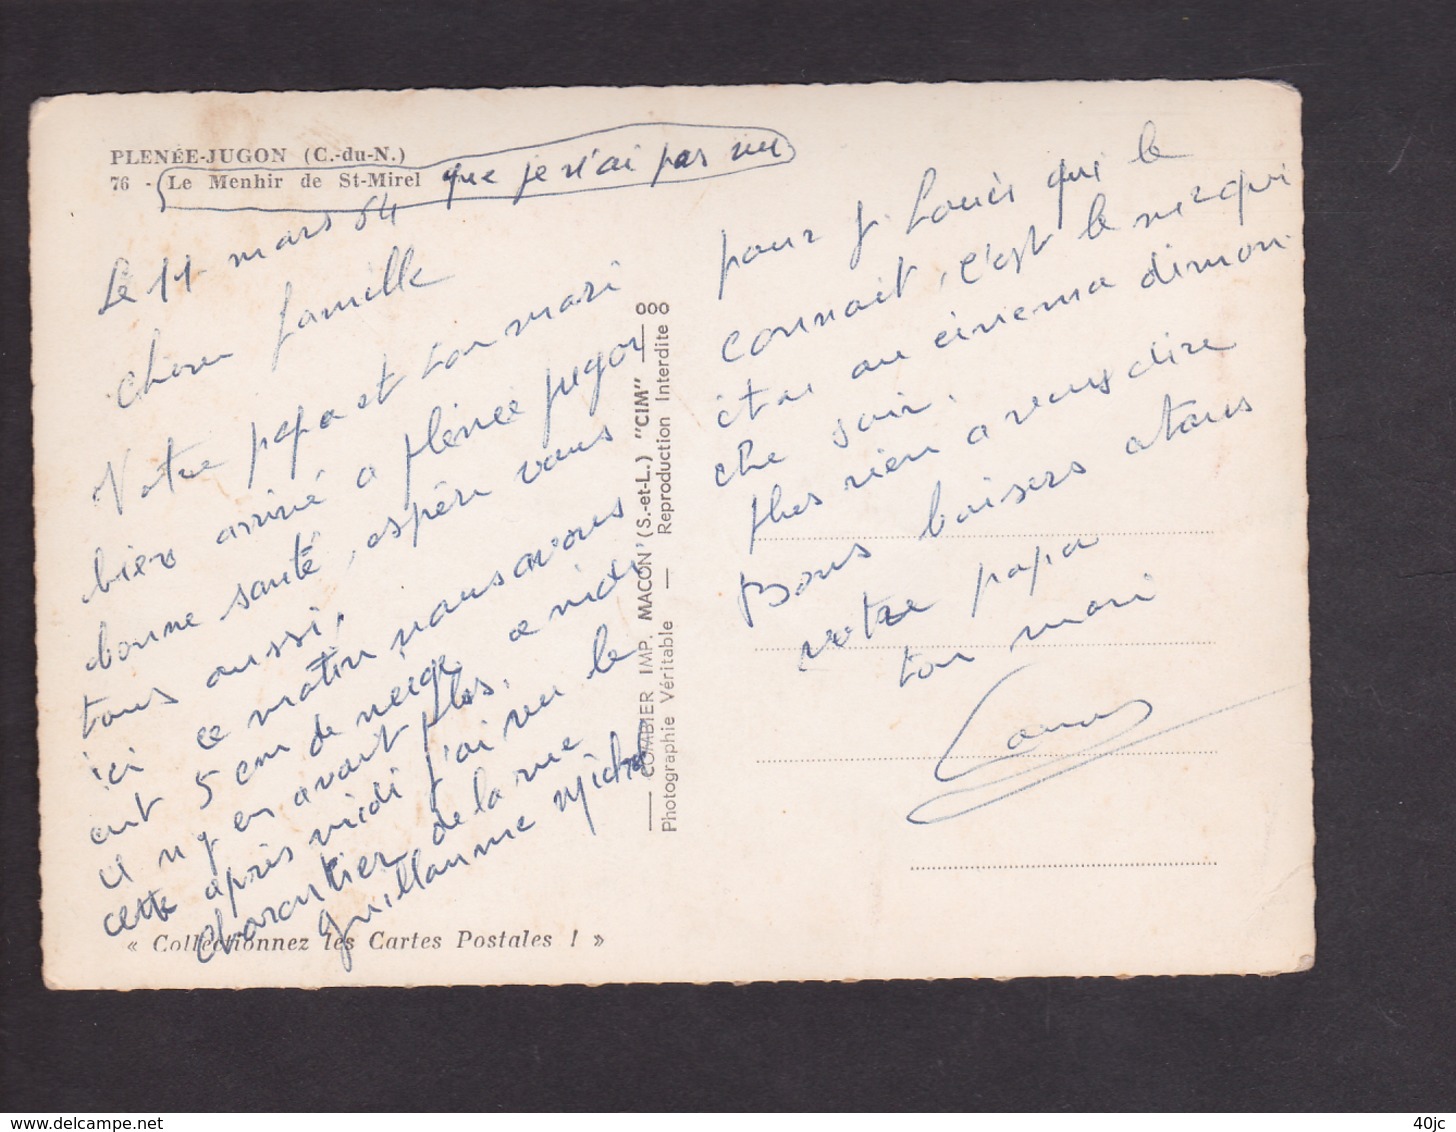 PLENÉE-JUGON (C.-du-N.)
76 - Le Menhir de St-Mirel que je n'ai pas vu
Le 11 mars 64
chere famille
Votre papa et ton mari
bien arrivé a plenée jugon
bonne santé, espère vous
tous aussi,
ici ce matin nous avons
eut 5 cm de neige a midi
il n y en avait plus.
cette après midi j'ai vu le
charcutier de la rue
guillaume
« Collectionnez les Cartes Postales ! »
COMBIER IMP. MACON (S.-et-L.) "CIM"
Photographie Véritable — Reproduction Interdite
pour J. Louis qui le
connait, c'est le mec qui
était au cinema diman
che soir.
plus rien a vous dire
Bons baisers a tous
votre papa
ton mari
www.delcampe.net
40jc